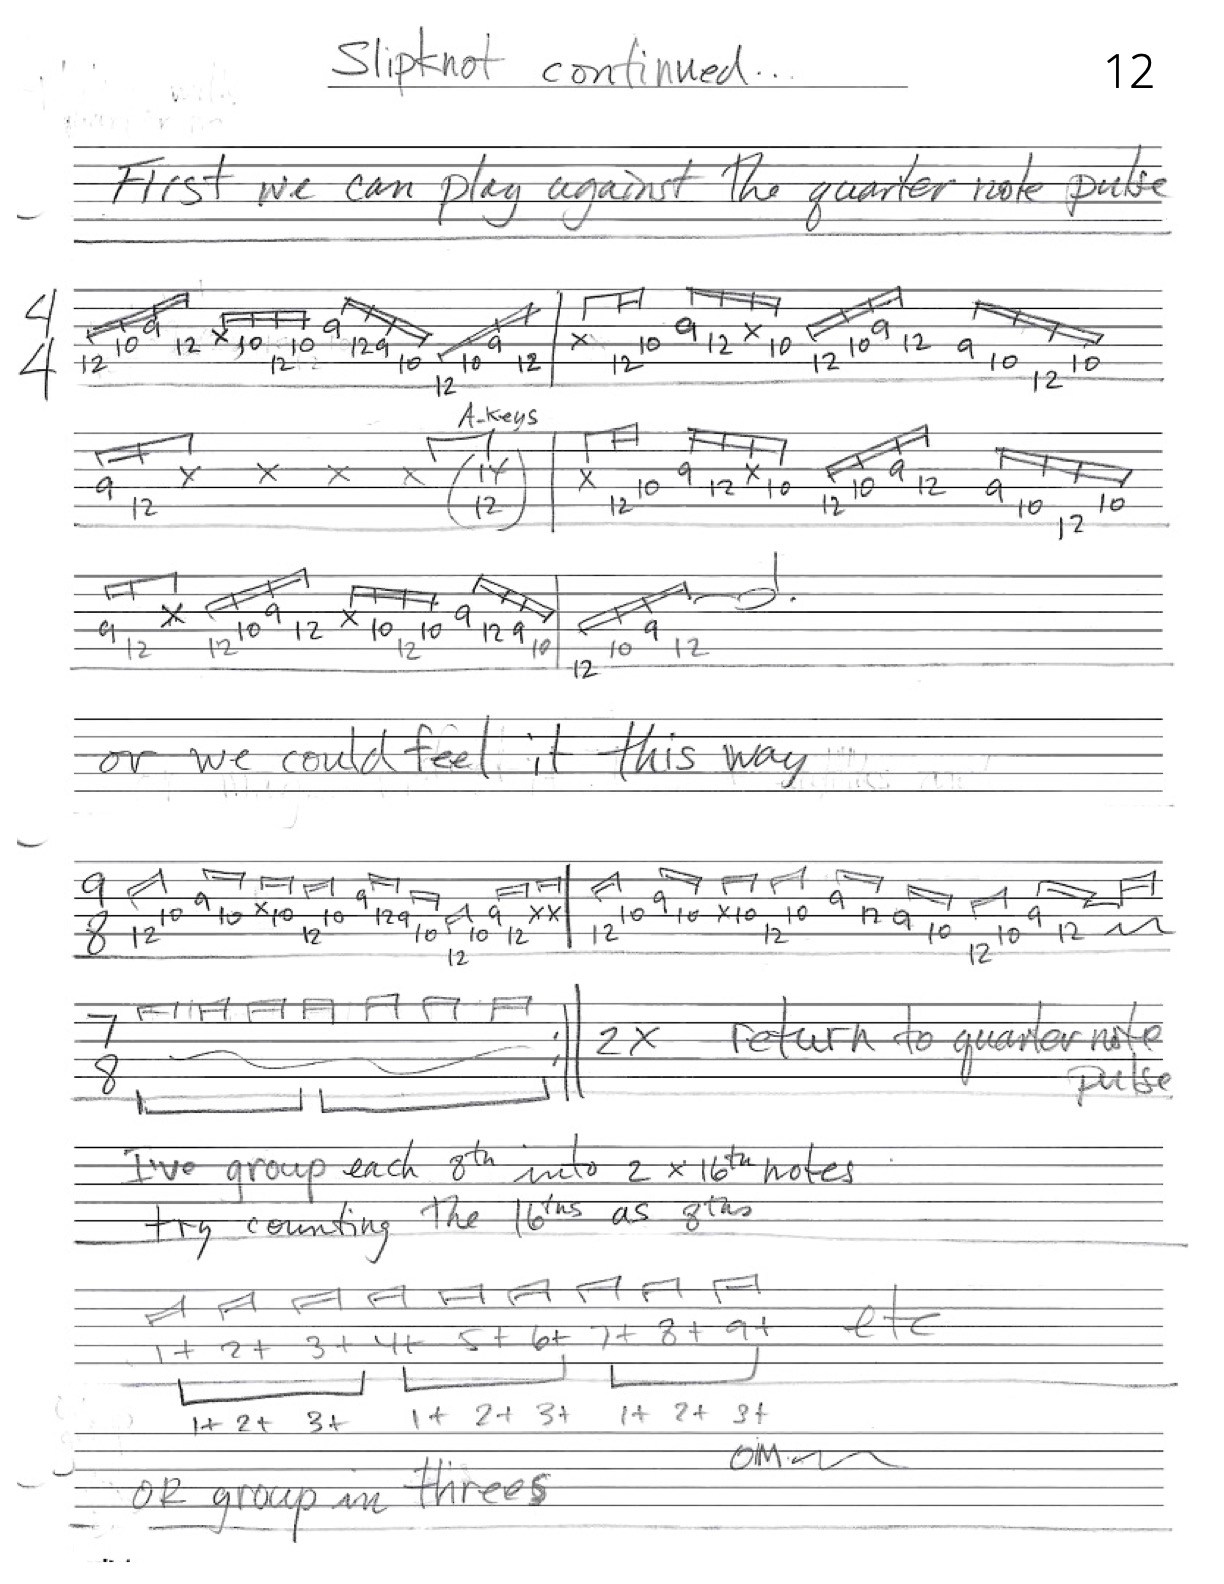 Slipknot continued...
12
First we can play against the quarter note pulse
4
4
12 10 9 12 x 10 12 10 9 12 9 10 12 10 9 12 x 12 10 9 12 x 10 12 10 9 12 9 10 12 10
A-Keys
9 12 x x x x (14 12) x 12 10 9 12 x 10 12 10 9 12 9 10 12 10
9 12 x 12 10 9 12 x 10 12 10 9 12 9 10 12 10 9 12
or we could feel it this way
9
8
12 10 9 10 x 10 12 10 9 12 9 10 12 10 9 12 x x 12 10 9 10 x 10 12 10 9 12 9 10 12 10 9 12
7
8
2x return to quarter note
pulse
I've group each 8th into 2 x 16th notes
try counting the 16ths as 8ths
1+ 2+ 3+ 4+ 5+ 6+ 7+ 8+ 9+ etc
1+ 2+ 3+ 1+ 2+ 3+ 1+ 2+ 3+
OR group in threes